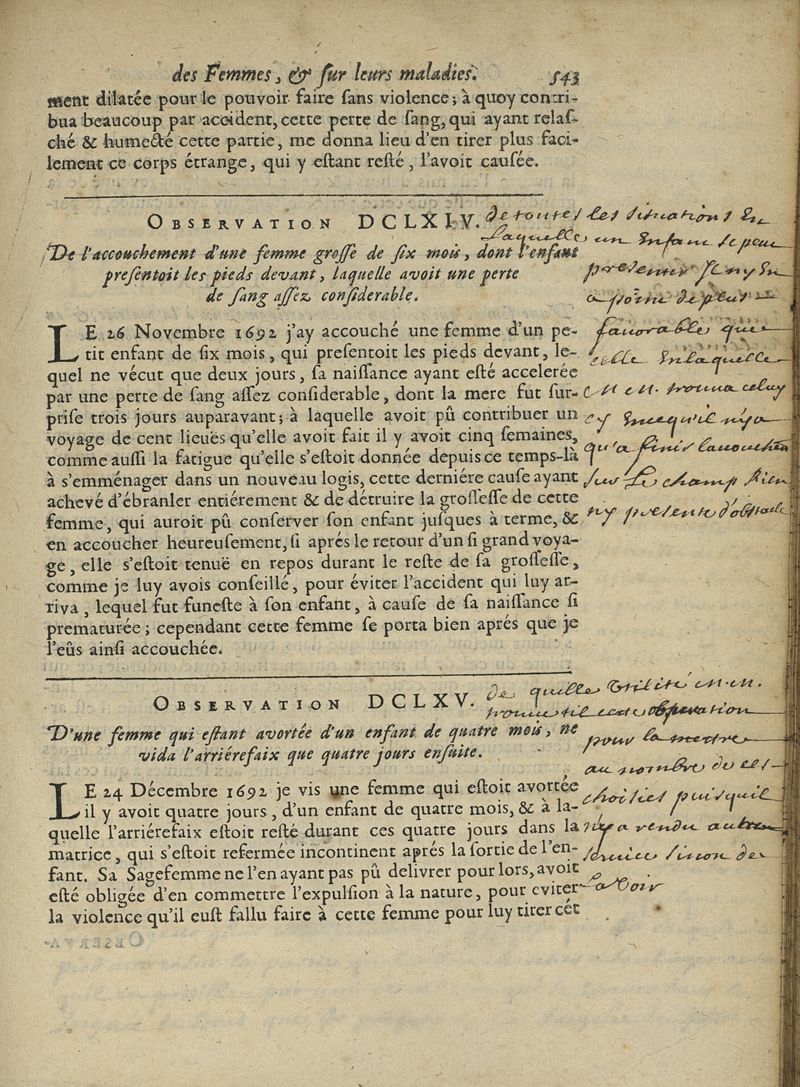 des Femmes, & ſur leurs maladies. 543
ment dilatée pour le pouvoir faire ſans violence ; à quoy contri-
bua beaucoup par accident, cette perte de ſang, qui ayant relaſ-
ché & humecté cette partie, me donna lieu d'en tirer plus faci-
lement ce corps étrange, qui y eſtant reſté, l'avoit cauſée.
OBSERVATION DCLXIV.
de toutes les situations en
laquelle un enfant se peut
De l'accouchement d'une femme groſſe de ſix mois, dont l'enfant
preſentoit les pieds devant, laquelle avoit une perte
de ſang aſſez conſiderable.
presenter il n'y en
a point de plus
favorable que
celle en laquelle
on en trouva celuy
cy
qu'a finir l'accouchem
sur le champ rien
n'y presente d'obstacle
LE 26 Novembre 1692 j'ay accouché une femme d'un pe-
tit enfant de ſix mois, qui preſentoit les pieds devant, le-
quel ne vécut que deux jours, ſa naiſſance ayant eſté accelerée
par une perte de ſang aſſez conſiderable, dont la mere fut ſur-
priſe trois jours auparavant ; à laquelle avoit pû contribuer un
voyage de cent lieuës qu'elle avoit fait il y avoit cinq ſemaines,
comme auſſi la fatigue qu'elle s'eſtoit donnée depuis ce temps-là
à s'emménager dans un nouveau logis, cette derniére cauſe ayant
achevé d'ébranler entiérement & de détruire la groſſeſſe de cette
femme, qui auroit pû conſerver ſon enfant juſques à terme, &
en accoucher heureuſement, ſi aprés le retour d'un ſi grand voya-
ge, elle s'eſtoit tenuë en repos durant le reſte de ſa groſſeſſe,
comme je luy avois conſeillé, pour éviter l'accident qui luy ar-
riva, lequel fut funeſte à ſon enfant, à cauſe de ſa naiſſance ſi
prematurée ; cependant cette femme ſe porta bien aprés que je
l'eûs ainſi accouchée.
OBSERVATION DCLXV.
de quelle utilité
observation
D'une femme qui eſtant avortée d'un enfant de quatre mois, ne
vida l'arriérefaix que quatre jours enſuite.
pour la mettre
au nombre de ces
choisies puisquil
n'y a rendu autre
service sinon de
a voir
LE 24 Décembre 1692 je vis une femme qui eſtoit avortée
il y avoit quatre jours, d'un enfant de quatre mois, & à la-
quelle l'arriérefaix eſtoit reſté durant ces quatre jours dans la
matrice, qui s'eſtoit refermée incontinent aprés la ſortie de l'en-
fant. Sa Sagefemme ne l'en ayant pas pû delivrer pour lors, avoit
eſté obligée d'en commettre l'expulſion à la nature, pour eviter
la violence qu'il euſt fallu faire à cette femme pour luy tirer cét